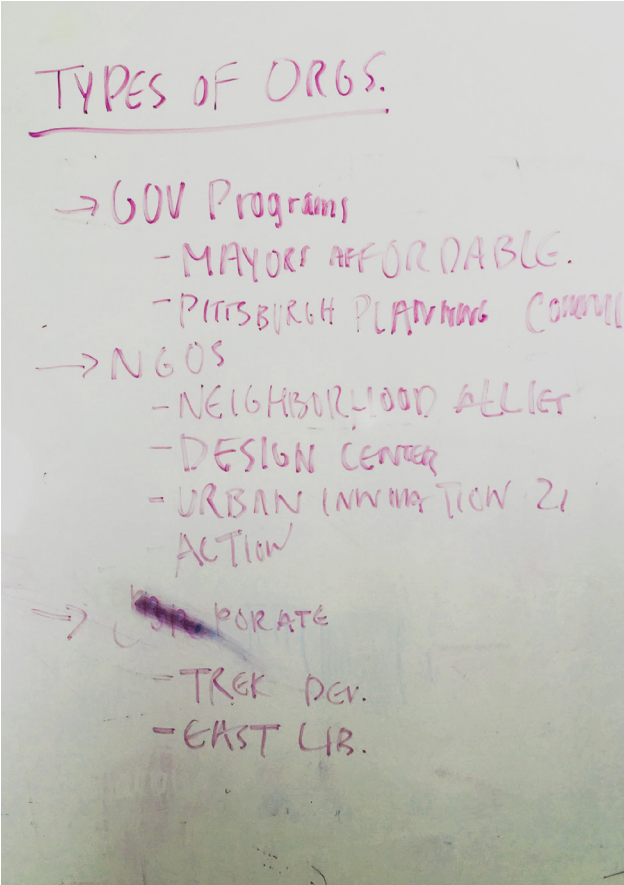 TYPES OF ORGS.
→ GOV Programs
- MAYORS AFFORDABLE.
- PITTSBURGH PLANNING
→ NGOS
- NEIGHBORHOOD ALLIES
- DESIGN CENTER
- URBAN INNOVATION 21
ACTION
→ PORATE
- TREK DEV.
- EAST LIB.